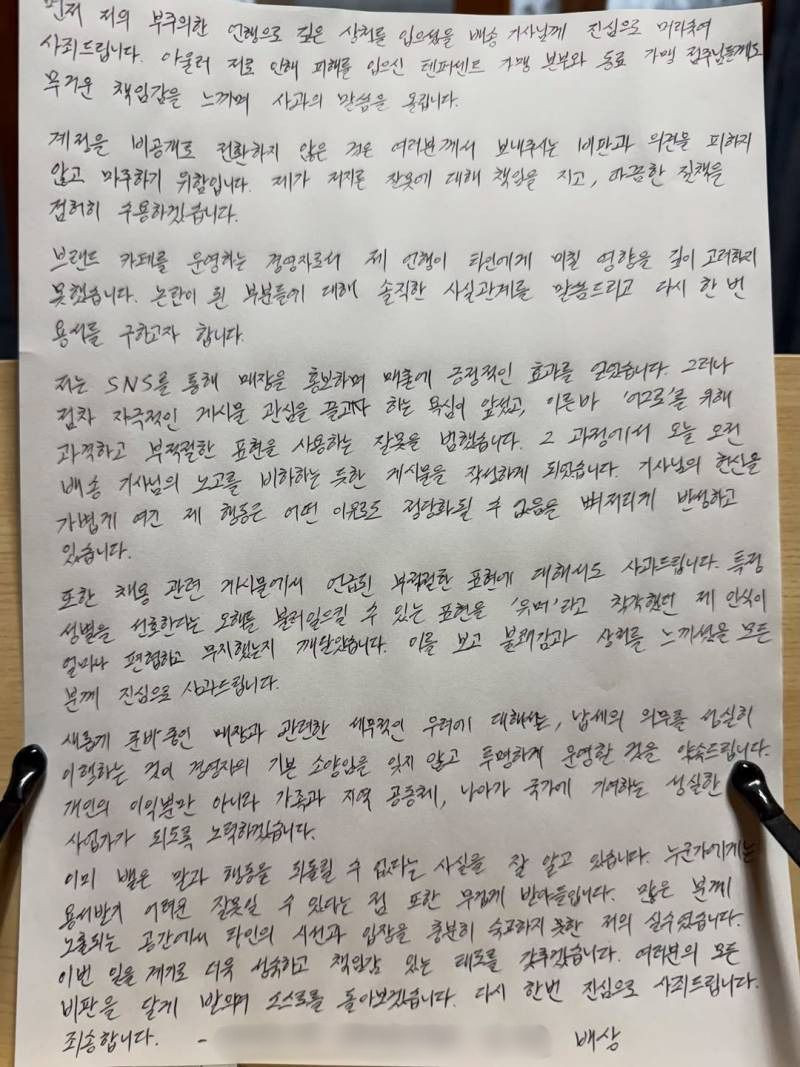 먼저 저의 부주의한 언행으로 깊은 상처를 입으셨을 배송 기사님께 진심으로 머리숙여
사죄드립니다. 아울러 저로 인해 피해를 입으신 텐퍼센트 가맹 본부와 동료 가맹 점주님들께도
무거운 책임감을 느끼며 사과의 말씀을 올립니다.
계정을 비공개로 전환하지 않은 것은 여러분께서 보내주시는 비판과 의견을 피하지
않고 마주하기 위함입니다. 제가 저지른 잘못에 대해 책임을 지고, 따끔한 질책을
겸허히 수용하겠습니다.
브랜드 카페를 운영하는 경영자로서 제 언행이 타인에게 미칠 영향을 깊이 고려하지
못했습니다. 논란이 된 부분들에 대해 솔직한 사실관계를 말씀드리고 다시 한 번
용서를 구하고자 합니다.
저는 SNS를 통해 매장을 홍보하며 매출에 긍정적인 효과를 얻었습니다. 그러나
점차 자극적인 게시물 관심을 끌고자 하는 욕심이 앞섰고, 이른바 '어그로'를 위해
과격하고 부적절한 표현을 사용하는 잘못을 범했습니다. 그 과정에서 오늘 오전
배송 기사님의 노고를 비하하는 듯한 게시물을 작성하게 되었습니다. 기사님의 헌신을
가볍게 여긴 제 행동은 어떤 이유로도 정당화될 수 없음을 뼈저리게 반성하고
있습니다.
또한 채용 관련 게시물에서 언급된 부적절한 표현에 대해서도 사과드립니다. 특정
성별을 선호한다는 오해를 불러일으킬 수 있는 표현을 '유머'라고 착각했던 제 인식이
얼마나 편협하고 무지했는지 깨달았습니다. 이를 보고 불쾌감과 상처를 느끼셨을 모든
분께 진심으로 사과드립니다.
새롭게 준비 중인 매장과 관련한 세무적인 우려에 대해서는, 납세의 의무를 성실히
이행하는 것이 경영자의 기본 소양임을 잊지 않고 투명하게 운영할 것을 약속드립니다.
개인의 이익뿐만 아니라 가족과 지역 공동체, 나아가 국가에 기여하는 성실한
사업가가 되도록 노력하겠습니다.
이미 뱉은 말과 행동을 되돌릴 수 없다는 사실을 잘 알고 있습니다. 누군가에게는
용서받기 어려운 잘못일 수 있다는 점 또한 무겁게 받아들입니다. 많은 분께
노출되는 공간에서 타인의 시선과 입장을 충분히 숙고하지 못한 저의 실수였습니다.
이번 일을 계기로 더욱 성숙하고 책임감 있는 태도를 갖추겠습니다. 여러분의 모든
비판을 달게 받으며 스스로를 돌아보겠습니다. 다시 한번 진심으로 사죄드립니다.
죄송합니다. - 배상